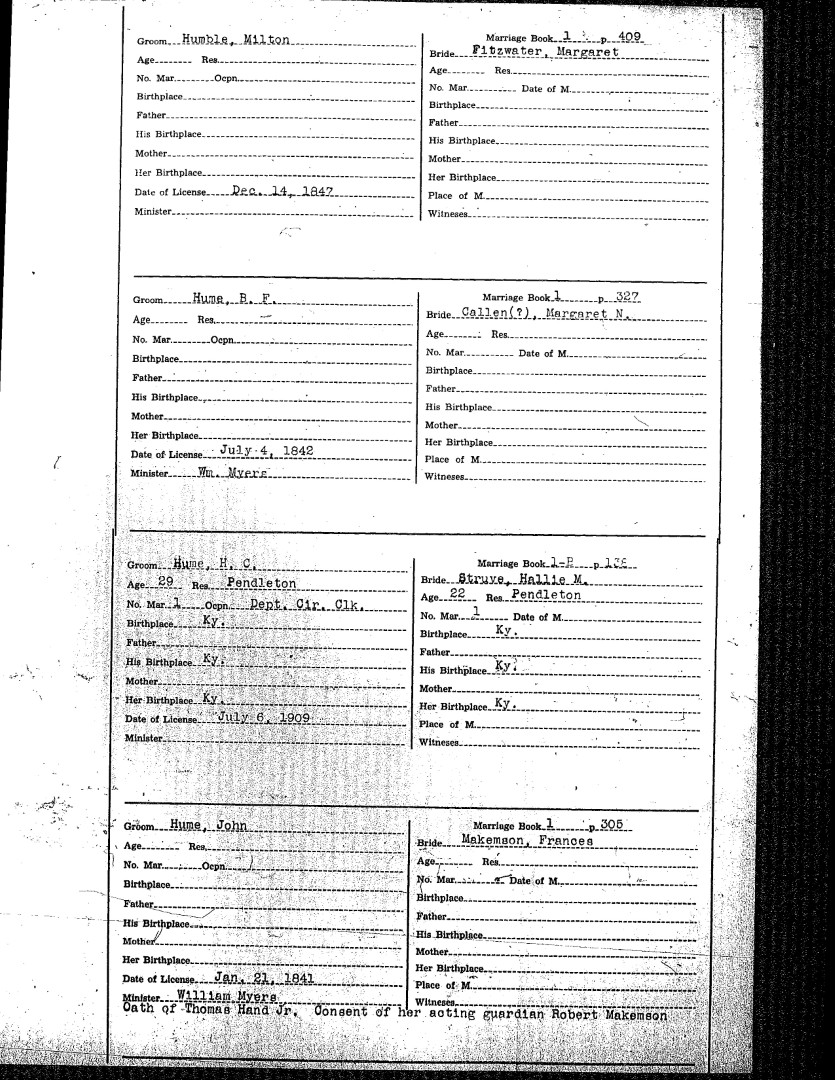 Groom Humble, Milton
Age Res.
No. Mar. Ocpn.
Birthplace
Father
His Birthplace
Mother
Her Birthplace
Date of License Dec. 14, 1847
Minister
Marriage Book 1 p. 409
Bride Fitzwater, Margaret
Age Res.
No. Mar. Date of M.
Birthplace
Father
His Birthplace
Mother
Her Birthplace
Place of M.
Witneses
Groom Hume, B. F.
Age Res.
No. Mar. Ocpn.
Birthplace
Father
His Birthplace
Mother
Her Birthplace
Date of License July 4, 1842
Minister Wm. Myers
Marriage Book 1 p. 327
Bride Callen(?), Margaret N.
Age Res.
No. Mar. Date of M.
Birthplace
Father
His Birthplace
Mother
Her Birthplace
Place of M.
Witneses
Groom Hume, H. C.
Age 29 Res. Pendleton
No. Mar. 1 Ocpn. Dept. Cir. Clk.
Birthplace Ky.
Father
His Birthplace Ky.
Mother
Her Birthplace Ky.
Date of License July 6, 1909
Minister
Marriage Book 1-B p
Bride Struve, Hallie M.
Age 22 Res. Pendleton
No. Mar. 1 Date of M.
Birthplace Ky.
Father
His Birthplace Ky.
Mother
Her Birthplace Ky.
Place of M.
Witneses
Groom Hume, John
Age Res.
No. Mar. Ocpn.
Birthplace
Father
His Birthplace
Mother
Her Birthplace
Date of License Jan. 21, 1841
Minister William Myers
Marriage Book 1 p. 305
Bride Makemson, Frances
Age Res.
No. Mar. Date of M.
Birthplace
Father
His Birthplace
Mother
Her Birthplace
Place of M.
Witneses
Oath of Thomas Hand Jr. Consent of her acting guardian Robert Makemson